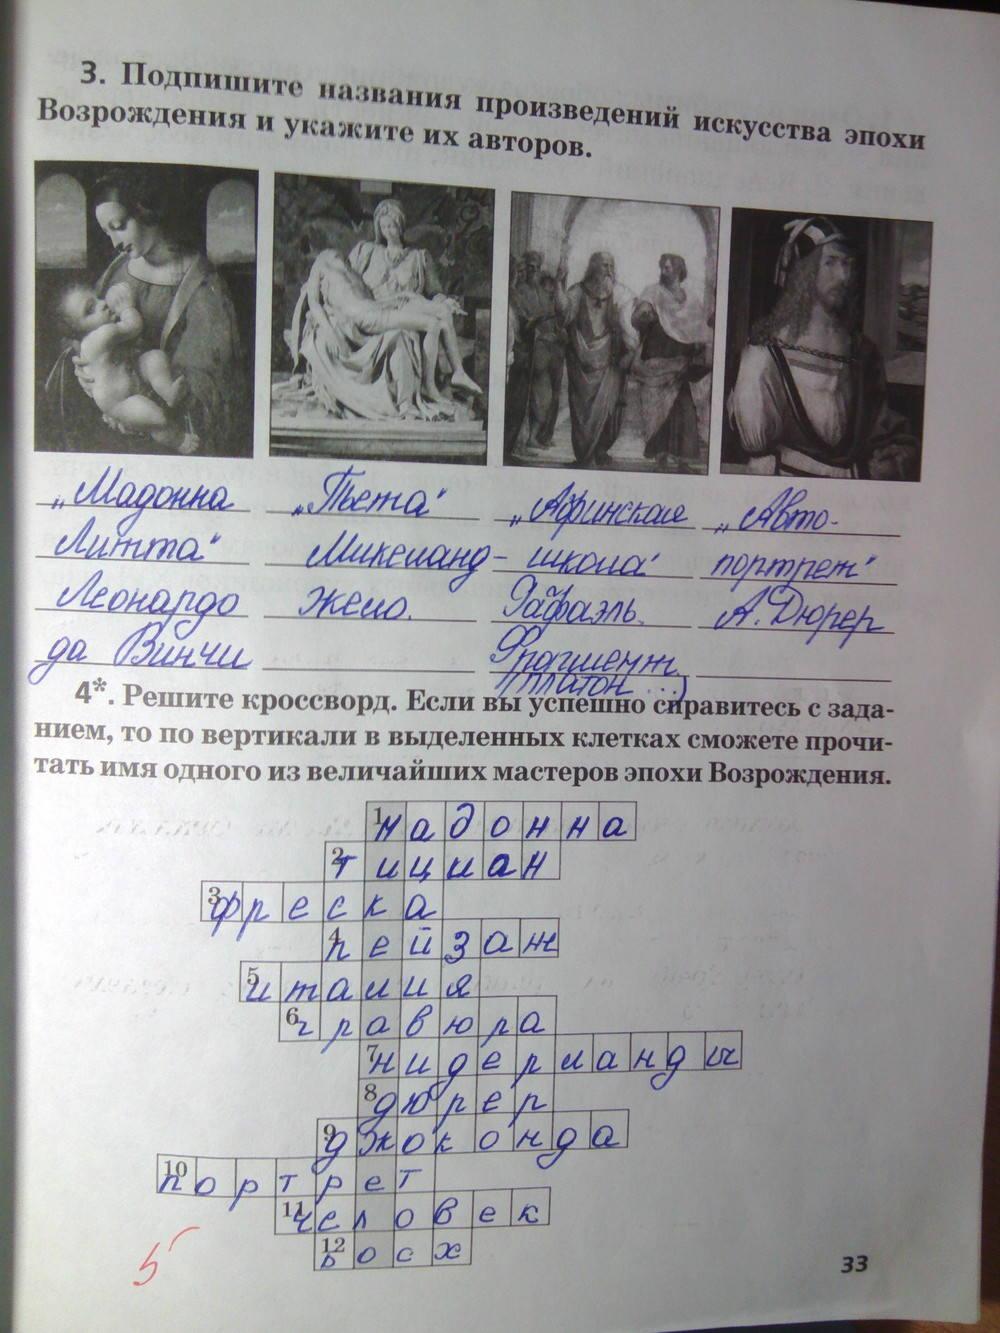 3. Подпишите названия произведений искусства эпохи
Возрождения и укажите их авторов.
„Мадонна
Литта"
Леонардо
да Винчи
„Пьета"
Микеланд-
жело.
„Афинская
школа"
Рафаэль.
Фрагмент
(Платон ...)
„Авто-
портрет"
А. Дюрер
4*. Решите кроссворд. Если вы успешно справитесь с зада-
нием, то по вертикали в выделенных клетках сможете прочи-
тать имя одного из величайших мастеров эпохи Возрождения.
1 мадонна
2 тициан
3 фреска
4 пейзаж
5 италия
6 гравюра
7 нидерланды
8 дюрер
9 джоконда
10 портрет
11 человек
12 босх
5
33